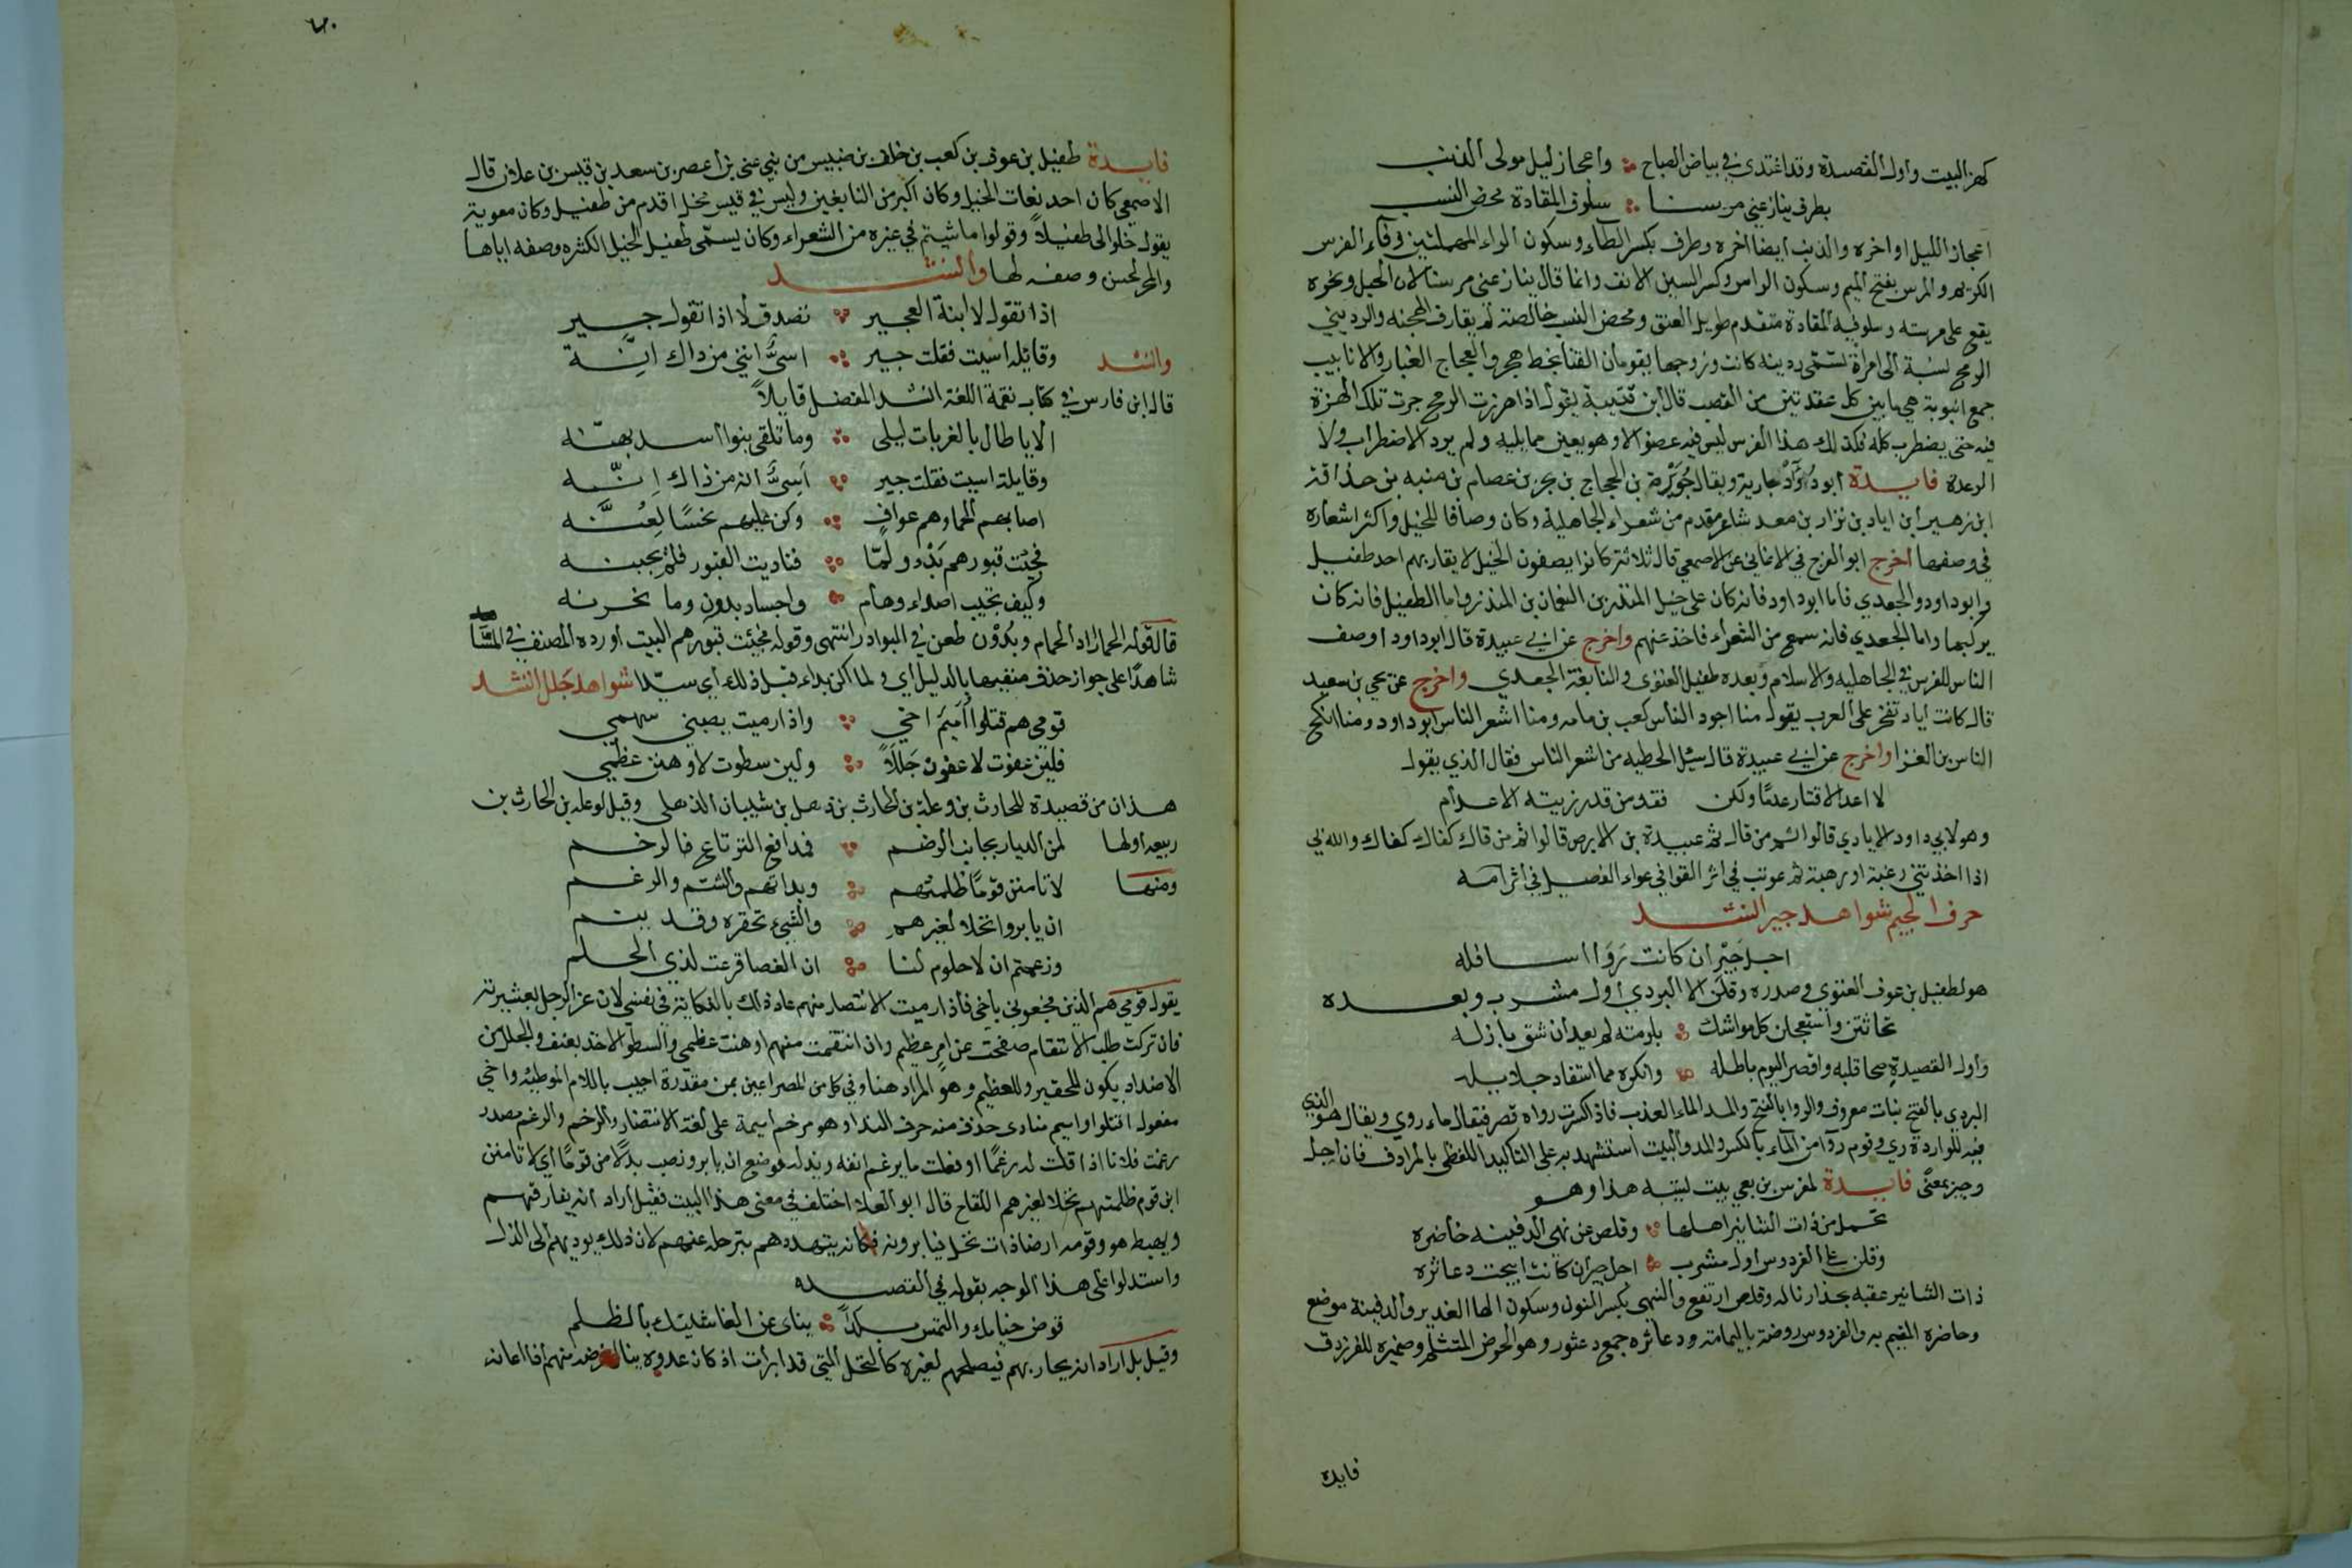 كهز البيت واول القصيدة وقد اغتدى في بياض الصباح واعجاز ليل مولى الذنب
بطرف ينازعني مرسنا سلوف المقادة محض النسب
اعجاز الليل اواخره والذنب ايضا اخره وطرف بكسر الطاء وسكون الراء المهملتين وفاء الفرس
الكريم والمرسن بفتح الميم وسكون الراس وكسر السين الانف وانما قال ينازعني مرسنا لان الحبل ونحوه
يقع على مرسنه وسلوفيه المقادة متقدم طويل العنق ومحض النسب خالصته لم يقارف الهجنه والرديني
الرمح نسبة الى امراة تسمى ردينه كانت وزوجها يقومان القنا بخط هجر والعجاج الغبار والانابيب
جمع انبوبة هي ما بين كل عقدتين من القصب قال ابن قتيبة يقول اذا هززت الرمح جرت تلك الهزة
فيه حتى يضطرب كله فكذلك هذا الفرس ليس فيه عضو الا وهو يعين ما يليه ولم يرد الاضطراب ولا
الرعدة فايدة ابو دؤاد جارية ويقال جويرة بن الحجاج بن بحر بن عصام بن منبه بن حذاقة
ابن زهير ابن اياد بن نزار بن معد شاعر مقدم من شعراء الجاهلية وكان وصافا للخيل واكثر اشعاره
في وصفها اخرج ابو الفرج في الاغاني عن الاصمعي قال ثلاثة كانوا يصفون الخيل لا يقاربهم احد طفيل
وابو داود والجعدي فاما ابو داود فانه كان على خيل المنذر بن النعمان بن المنذر واما الطفيل فانه كان
يركبها واما الجعدي فانه سمع من الشعراء فاخذ عنهم واخرج عن ابي عبيدة قال ابو داود اوصف
الناس للفرس في الجاهليه والاسلام وبعده طفيل الغنوى والنابغة الجعدي واخرج عن يحيى بن سعيد
قال كانت اياد تفخر على العرب يقول منا اجود الناس كعب بن مامه ومنا اشعر الناس ابو داود ومنا انكح
الناس بن الغز واخرج عن ابي عبيدة قال سئل الحطيه من اشعر الناس فقال الذي يقول
لا اعد الاقتار عدما ولكن فقد من قد رزيته الاعدام
وهو لابي داود الايادي قالوا ثم من قال ثم عبيدة بن الابرص قالوا ثم من قال كفاك كفاك والله بي
اذا اخذتني رغبة او رهبة ثم عويت في اثر القوافي عواء الفصيل في اثر امه
حرف الجيم شواهد جير انشد
اجل جير ان كانت رواا اسافله
هو لطفيل بن عوف الغنوي وصدره وقلن الا البردي اول مشرب وبعده
تحاثثن واستعجلن كل مواشك بلومته لم يعد ان شق بازله
واول القصيدة صحا قلبه واقصر اليوم باطله وانكره مما استفاد حلايله
البردي بالفتح بنات معروف والروا بالفتح والمد الماء العذب فاذا كسرت رواه قصر فيقال ماء روي ويقال هو الذي
فيه للواردة ري وقوم روا من الماء بالكسر والمد والبيت استشهد به على التاكيد اللفظي بالمرادف فان اجل
وجير بمعنى فايدة لمضرس بن بعي بيت لبيته هذا وهو
تحمل من ذات التنانير اهلها وقلص عن نهى الدفينه حاضره
وقلن على الفردوس اول مشرب اجل جير ان كانت ابيحت دعاثره
ذات التنانير عقبه بحذا زباله وقلص ارتفع والنهى بكسر النون وسكون الها الغدير والدفينة موضع
وحاضره المقيم به والفردوس روضة باليمامة ودعاثره جمع دعثور وهو الحوض المتثلم وضميره للفردوس
فايده
٦٠
فايدة طفيل بن عوف بن كعب بن خلف بن ضبيس من بني غنى بن اعصر بن سعد بن قيس بن علان قال
الاصمعي كان احد نعات الخيل وكان اكبر من النابغين وليس في قيس فحل اقدم من طفيل وكان معوية
يقول خلوا لي طفيلا وقولوا ما شيتم في غيره من الشعراء وكان يسمى طفيل الخيل لكثره وصفه اياها
والمحبر لحسن وصفه لها وانشد
اذا تقول لا ابنة العجير تصدق لا اذا تقول جير
وانشد وقايله اسيت فقلت جير اسي انني من ذاك انه
قال ابن فارس في كتاب فقه اللغة انشد المفضل قايلا
الا يا طال بالغربات ليلى وما تلقى بنوا اسد بهنه
وقايلة اسيت فقلت جير اسي انه من ذاك انه
اصابهم الحما وهم عواف وكن عليهم نحسا لعنه
فجئت قبورهم بدوا ولما فناديت القبور فلم يجبنه
وكيف تجيب اصداء وهام واجساد بدون وما نخرنه
قال قوله الحما اراد الحمام وبدون طعن في البوادر انتهى وقوله فجئت قبورهم البيت اورده المصنف في
شاهدا على جواز حذف منفيها بالدليل اي ولما اكن بداء قبل ذلك اي سيدا شواهد جلل انشد
قومي هم قتلوا اميم اخي واذا رميت يصيبني سهمي
فلئن عفوت لاعفون جللا ولين سطوت لاوهنن عظمي
هذان من قصيدة للحارث بن وعلة بن الحارث بن ذهل بن شيبان الذهلى وقيل لوعلة بن الحارث بن
ربيعه اولها لمن الديار بجانب الرضم فمدافع الترتاع فالرخم
ومنها لا تامنن قوما ظلمتهم وبداتهم والشتم والرغم
ان يابروا نخلا لغيرهم والشيء تحقره وقد ينم
وزعمتم ان لا حلوم لنا ان العصا قرعت لذي الحلم
يقول قومي هم الذين فجعوني باخي فاذا رميت الانتصار منهم عاد ذلك بالنكاية في نفسي لان عز الرجل بعشيرته
فان تركت طلب الانتقام صفحت عن امر عظيم وان انتقمت منهم اوهنت عظمي والسطو الاخذ بعنف والجلل من
الاضداد يكون للحقير وللعظيم وهو المراد هنا وفي كل من المصراعين يمين مقدرة اجيب باللام الموطيه واخي
مفعول اقتلوا واميم منادى حذف منه حرف الندا وهو مرخم اميمة على لغة الانتظار والرخم والرغم مصدر
رغمت فلانا اذا قلت له رغما او فعلت ما يرغم انفه ويذله وموضع ان يابرو نصب بدلا من قوما اي لا تامنن
ابن قوم ظلمتهم نخلا لغيرهم اللقاح قال ابو العلا اختلف في معنى هذا البيت فقيل اراد انه يفارقهم
ويهبط هو وقومه ارضا ذات نخل فيابرونه فكانه يتهددهم بترحله عنهم لان ذلك يوديهم الى الذل
واستدلوا على هذا الوجه بقوله في القصيده
قوض خيامك والتمس بلدا يناى عن الغاشيك بالظلم
وقيل بل اراد انه يحاربهم فيصلحهم لغيره كالنخل التي قد ابرت اذ كان عدوه ينال غرضه منهم اذا اعانه